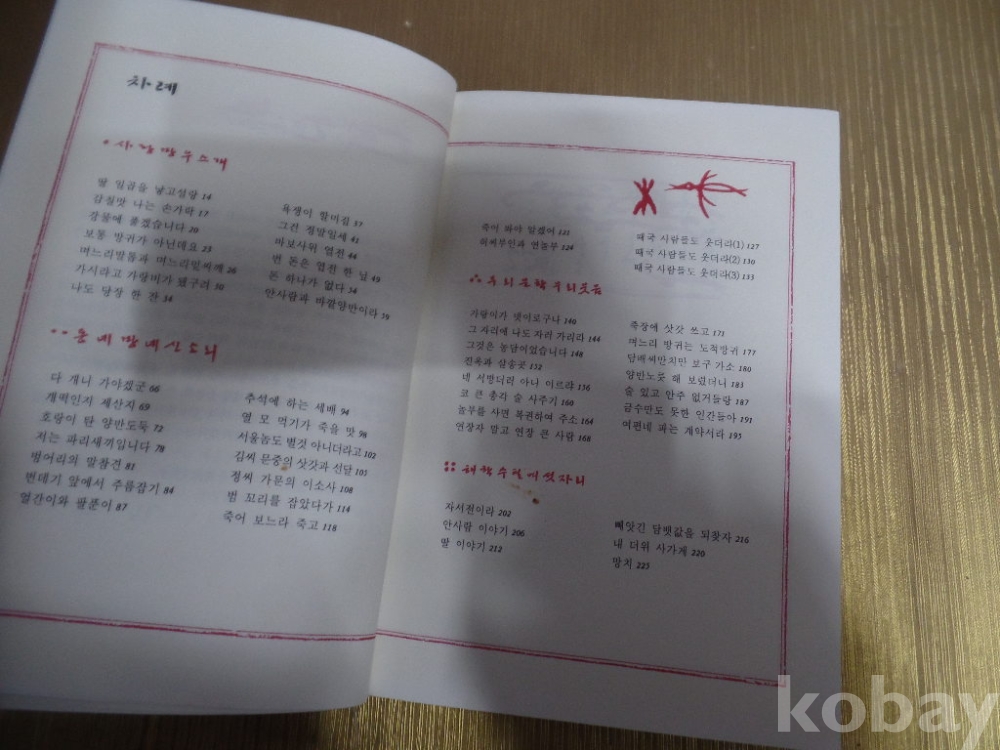 차례
사랑방무소개
딸 일곱을 낳고설랑 14
감질맛 나는 손가락 17
강물에 풀겠습니다 20
보통 방귀가 아닌데요 23
며느리발톱과 며느리밑씨개 26
가시라고 가랑비가 뎄구러 30
나도 당장 한 잔 34
욕쟁이 할미집 37
그건 정말일세 41
바보사위 열전 44
번 돈은 엽전 한 닢 49
돈 하나가 없다 54
안사람과 바깥양반이라 59
다 개니 가야겠군 66
개떡인지 제산지 69
호랑이 탄 양반도둑 72
저는 파리새끼입니다 78
벙어리와 말참견 81
번데기 앞에서 주름잡기 84
얼간이와 팔푼이 87
추석에 하는 세배 94
열 모 먹기가 죽을 맛 98
서울놈도 별것 아니더라고 102
김씨 문중의 삿갓과 선달 105
정씨 가문의 이소사 108
범 꼬리를 잡았다가 114
죽어 보느라 죽고 118
죽어 봐야 알겠어 122
허씨부인과 연놀부 124
때국 사람들도 웃더라(1) 127
때국 사람들도 웃더라(2) 130
때국 사람들도 웃더라(3) 133
우리문학 우리웃음
가랑이가 넷이로구나 140
그 자리에 나도 자러 가리라 144
그것은 농담이었습니다 148
진옥과 살송곳 152
네 서방더러 아니 이르랴 156
코 큰 총각 술 사주기 160
놀부를 사면 복권하여 주소 164
연장자 말고 연장 큰 사람 168
죽장에 삿갓 쓰고 171
며느리 방귀는 도적방귀 177
담배씨만치만 보구 가소 180
양반노릇 해 보렸더니 183
술 있고 안주 없거들랑 187
금수만도 못한 인간들아 191
여편네 파는 계약서라 195
자서전이라 202
안사람 이야기 206
딸 이야기 212
빼앗긴 담뱃값을 되찾자 216
내 더위 사가게 220
망치 225
kobay